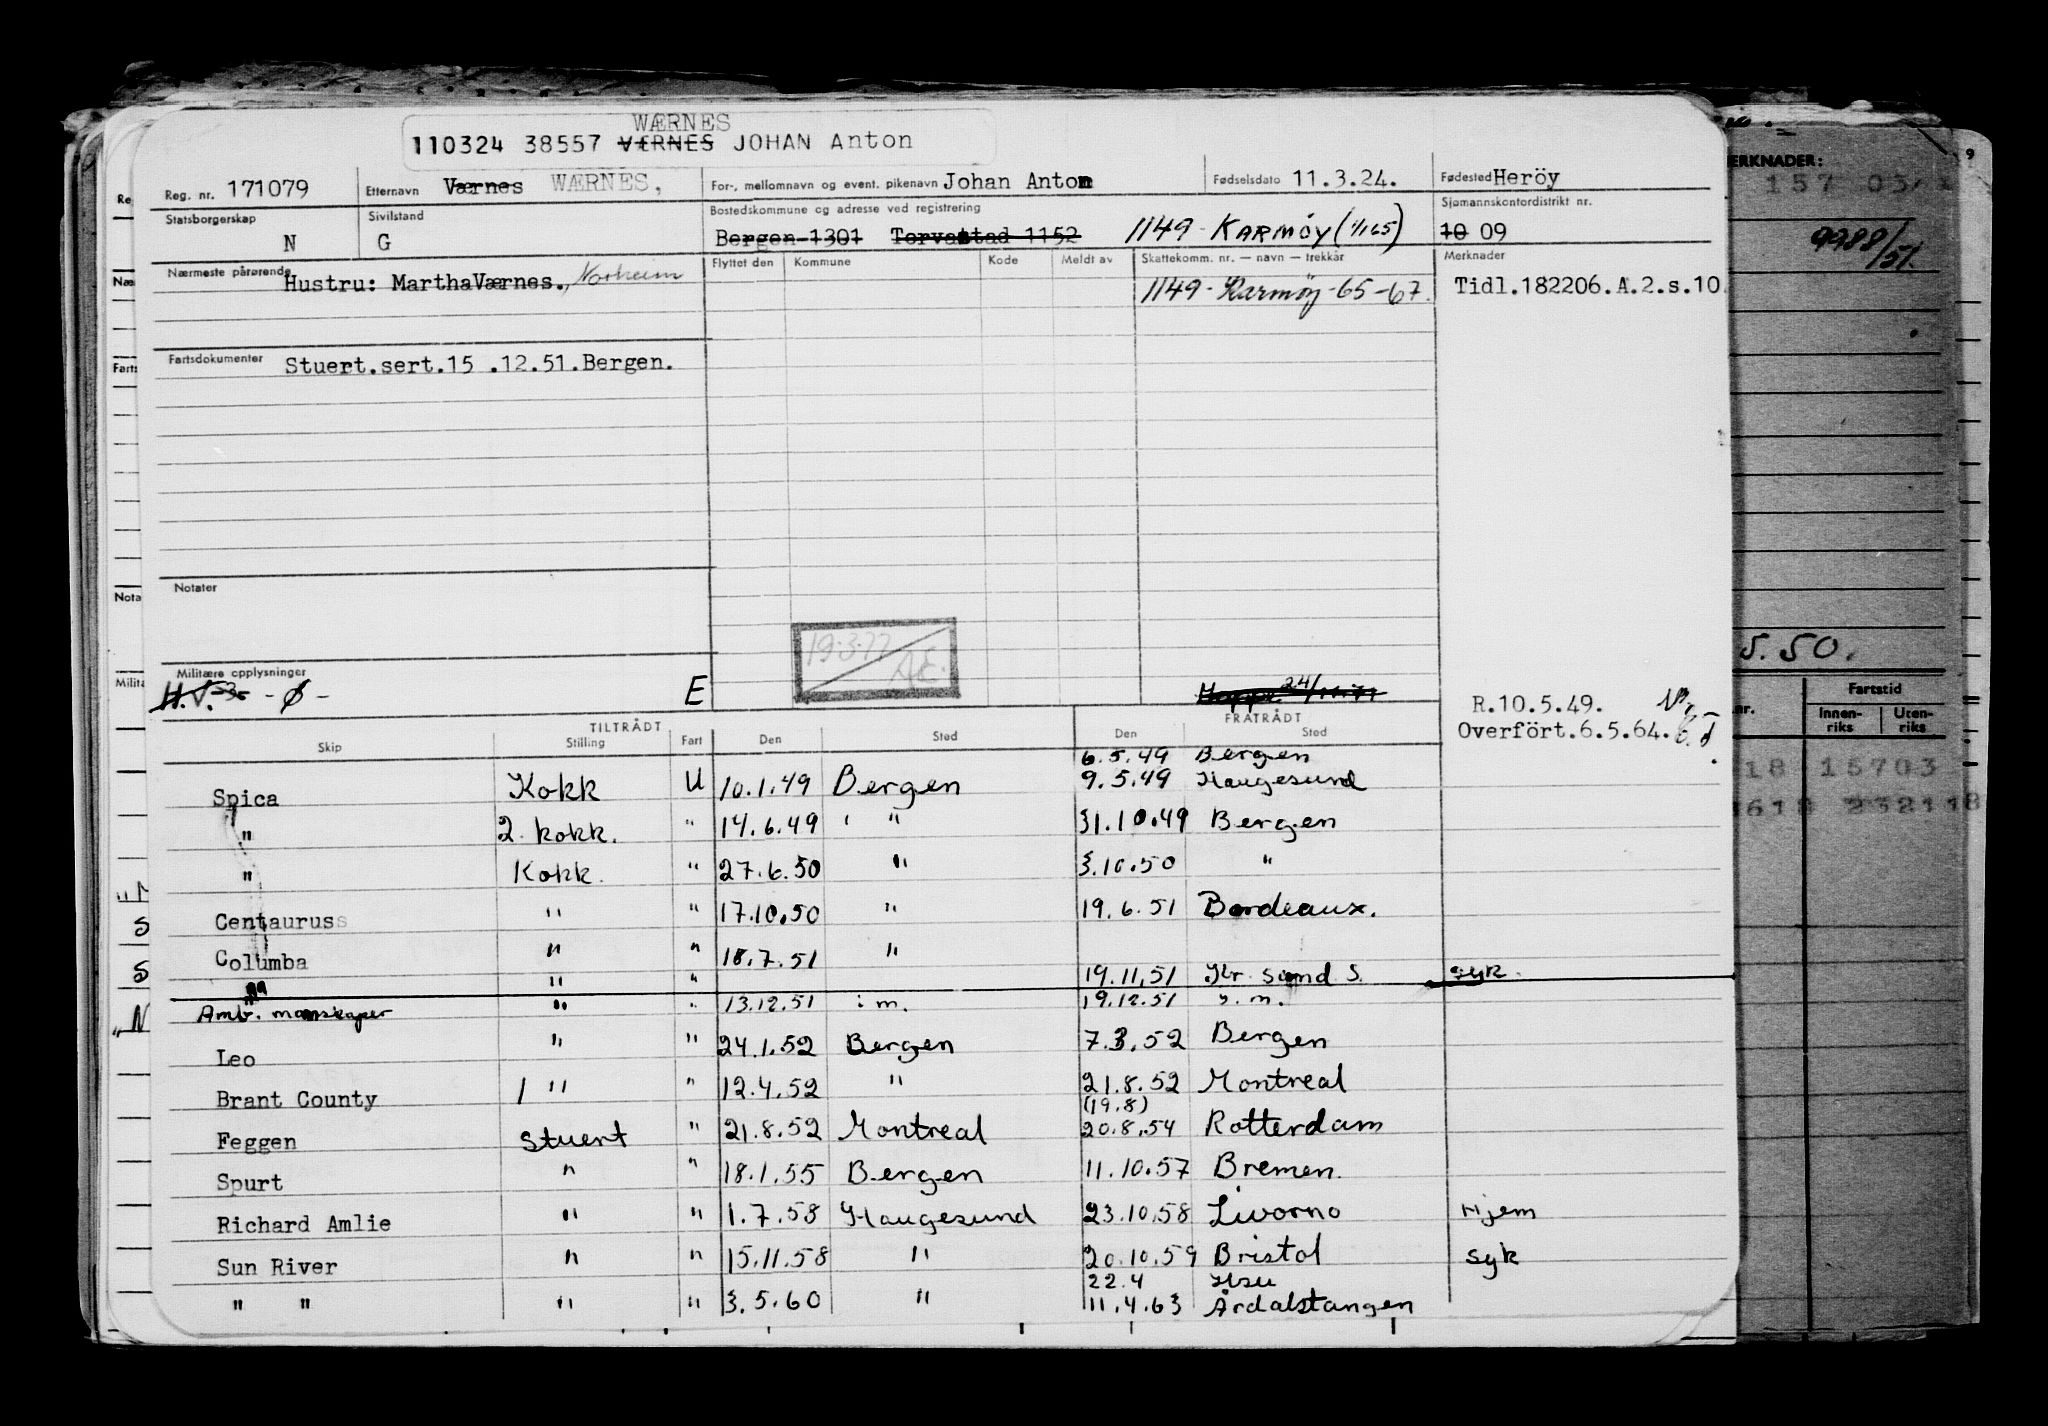 WÆRNES
110324 38557 VÆRNES JOHAN Anton
Reg. nr. 171079 Etternavn Værnes WÆRNES, For-, mellomnavn og event. pikenavn Johan Anton Fødselsdato 11.3.24. Fødested Heröy
Statsborgerskap N Sivilstand G Bostedskommune og adresse ved registrering Bergen 1301 Torvastad 1152 1149 KARMØY (1/1 65) Sjømannskontordistrikt nr. 10 09
Nærmeste pårørende Flyttet den Kommune Kode Meldt av Skattekomm. nr. — navn — trekkår Merknader
Hustru: Martha Værnes., Norheim 1149 - Karmøy - 65-67. Tidl.182206.A.2.s.10
Fartsdokumenter Stuert.sert.15 .12.51.Bergen.
Notater
19.3.77
Militære opplysninger
H.V. - Ø - E
R.10.5.49.
Overfört.6.5.64.
TILTRÅDT FRATRÅDT
Skip Stilling Fart Den Sted Den Sted
6.5.49 Bergen
Spica Kokk U 10.1.49 Bergen 9.5.49 Haugesund
" 2. kokk. " 14.6.49 " 31.10.49 Bergen
" Kokk. " 27.6.50 " 3.10.50 "
Centauruss " " 17.10.50 " 19.6.51 Bordeaux.
Columba " " 18.7.51 "
" " " 19.11.51 Kr. sund S. syk.
Amb. mannskaper " " 13.12.51 i.m. 19.12.51 i.m.
Leo " " 24.1.52 Bergen 7.3.52 Bergen
Brant County 1 " " 12.4.52 " 21.8.52 Montreal
(19.8)
Feggen Stuert " 21.8.52 Montreal 20.8.54 Rotterdam
Spurt " " 18.1.55 Bergen 11.10.57 Bremen.
Richard Amlie " " 1.7.58 Haugesund 23.10.58 Livorno Hjem
Sun River " " 15.11.58 " 20.10.59 Bristol syk
22.4 Hsu
" " " " 3.5.60 " 11.4.63 Årdalstangen
ERKNADER: 9
157 03
9988/51.
5.50.
nr. Fartstid
Innen-riks Uten-riks
18 15703
3618 232118